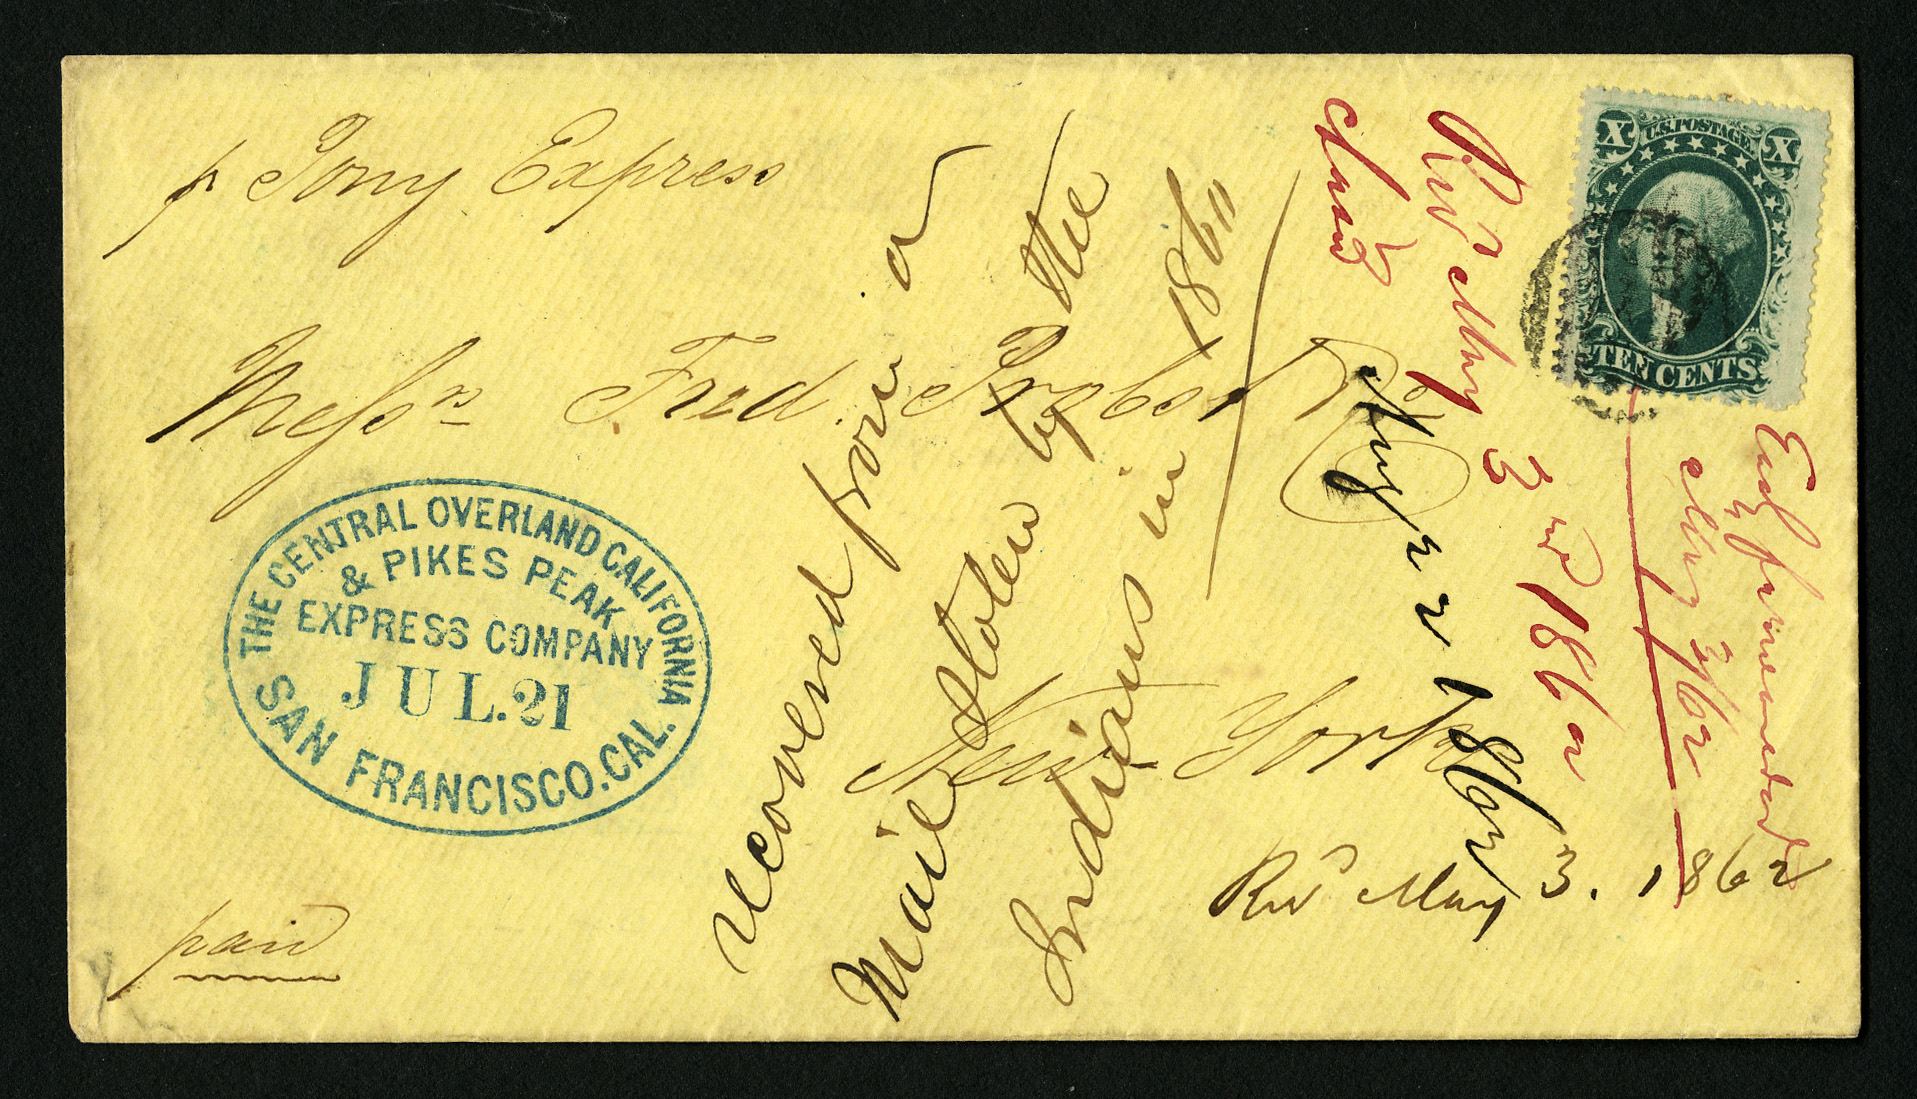 p Pony Express
Messrs Fred. Probst & Co
New York
paid
recovered from a
Mail stolen by the
Indians in 1860
THE CENTRAL OVERLAND CALIFORNIA
& PIKES PEAK
EXPRESS COMPANY
JUL. 21
SAN FRANCISCO. CAL.
X U.S. POSTAGE X
TEN CENTS
Recd May 3rd 1862
May 3/62
Recd May 3. 1862
1862